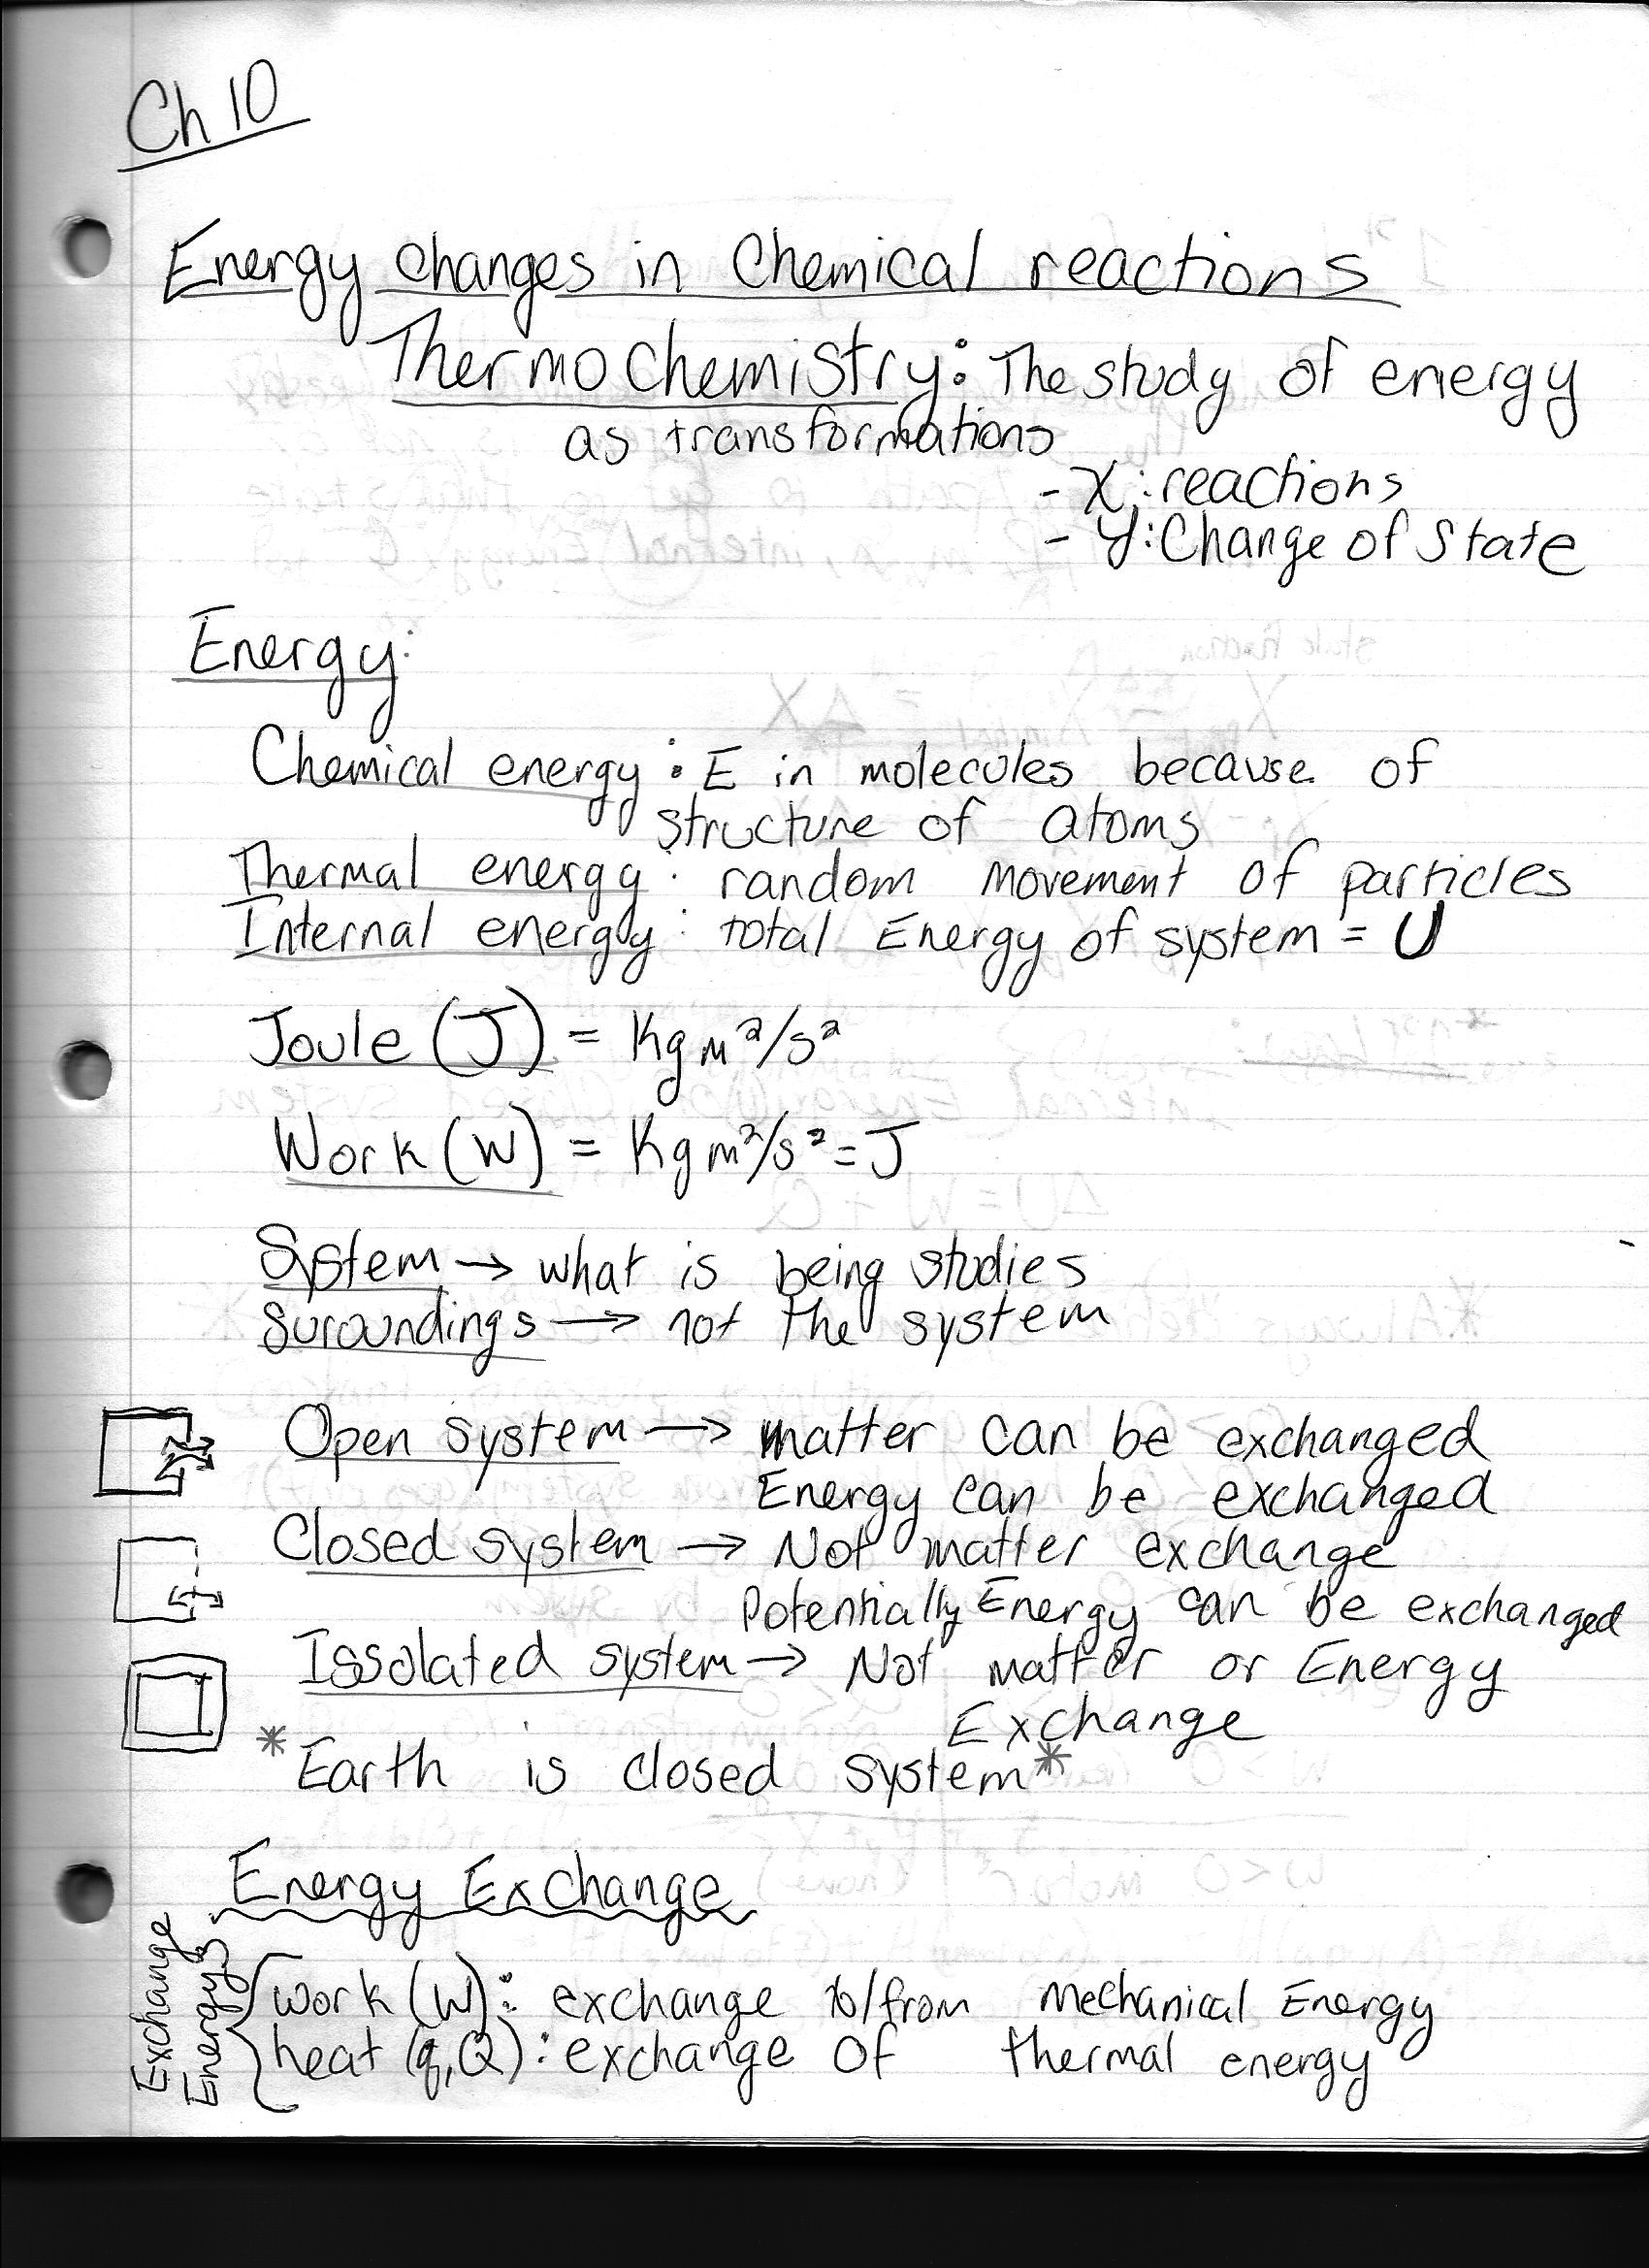 Ch 10
Energy changes in Chemical reactions
Thermochemistry: The study of energy
as transformations
- X: reactions
- Y: Change of State
Energy:
Chemical energy: E in molecules because of
structure of atoms
Thermal energy: random movement of particles
Internal energy: total Energy of system = U
Joule (J) = Kg m²/s²
Work (W) = Kg m²/s² = J
System → what is being studies
Suroundings → not the system
Open system → matter can be exchanged
Energy can be exchanged
Closed system → Not matter exchange
Potentially Energy can be exchanged
Issolated system → Not matter or Energy
Exchange
* Earth is closed system *
Energy Exchange
Exchange
Energys
work (W): exchange to/from mechanical Energy
heat (q,Q): exchange of thermal energy